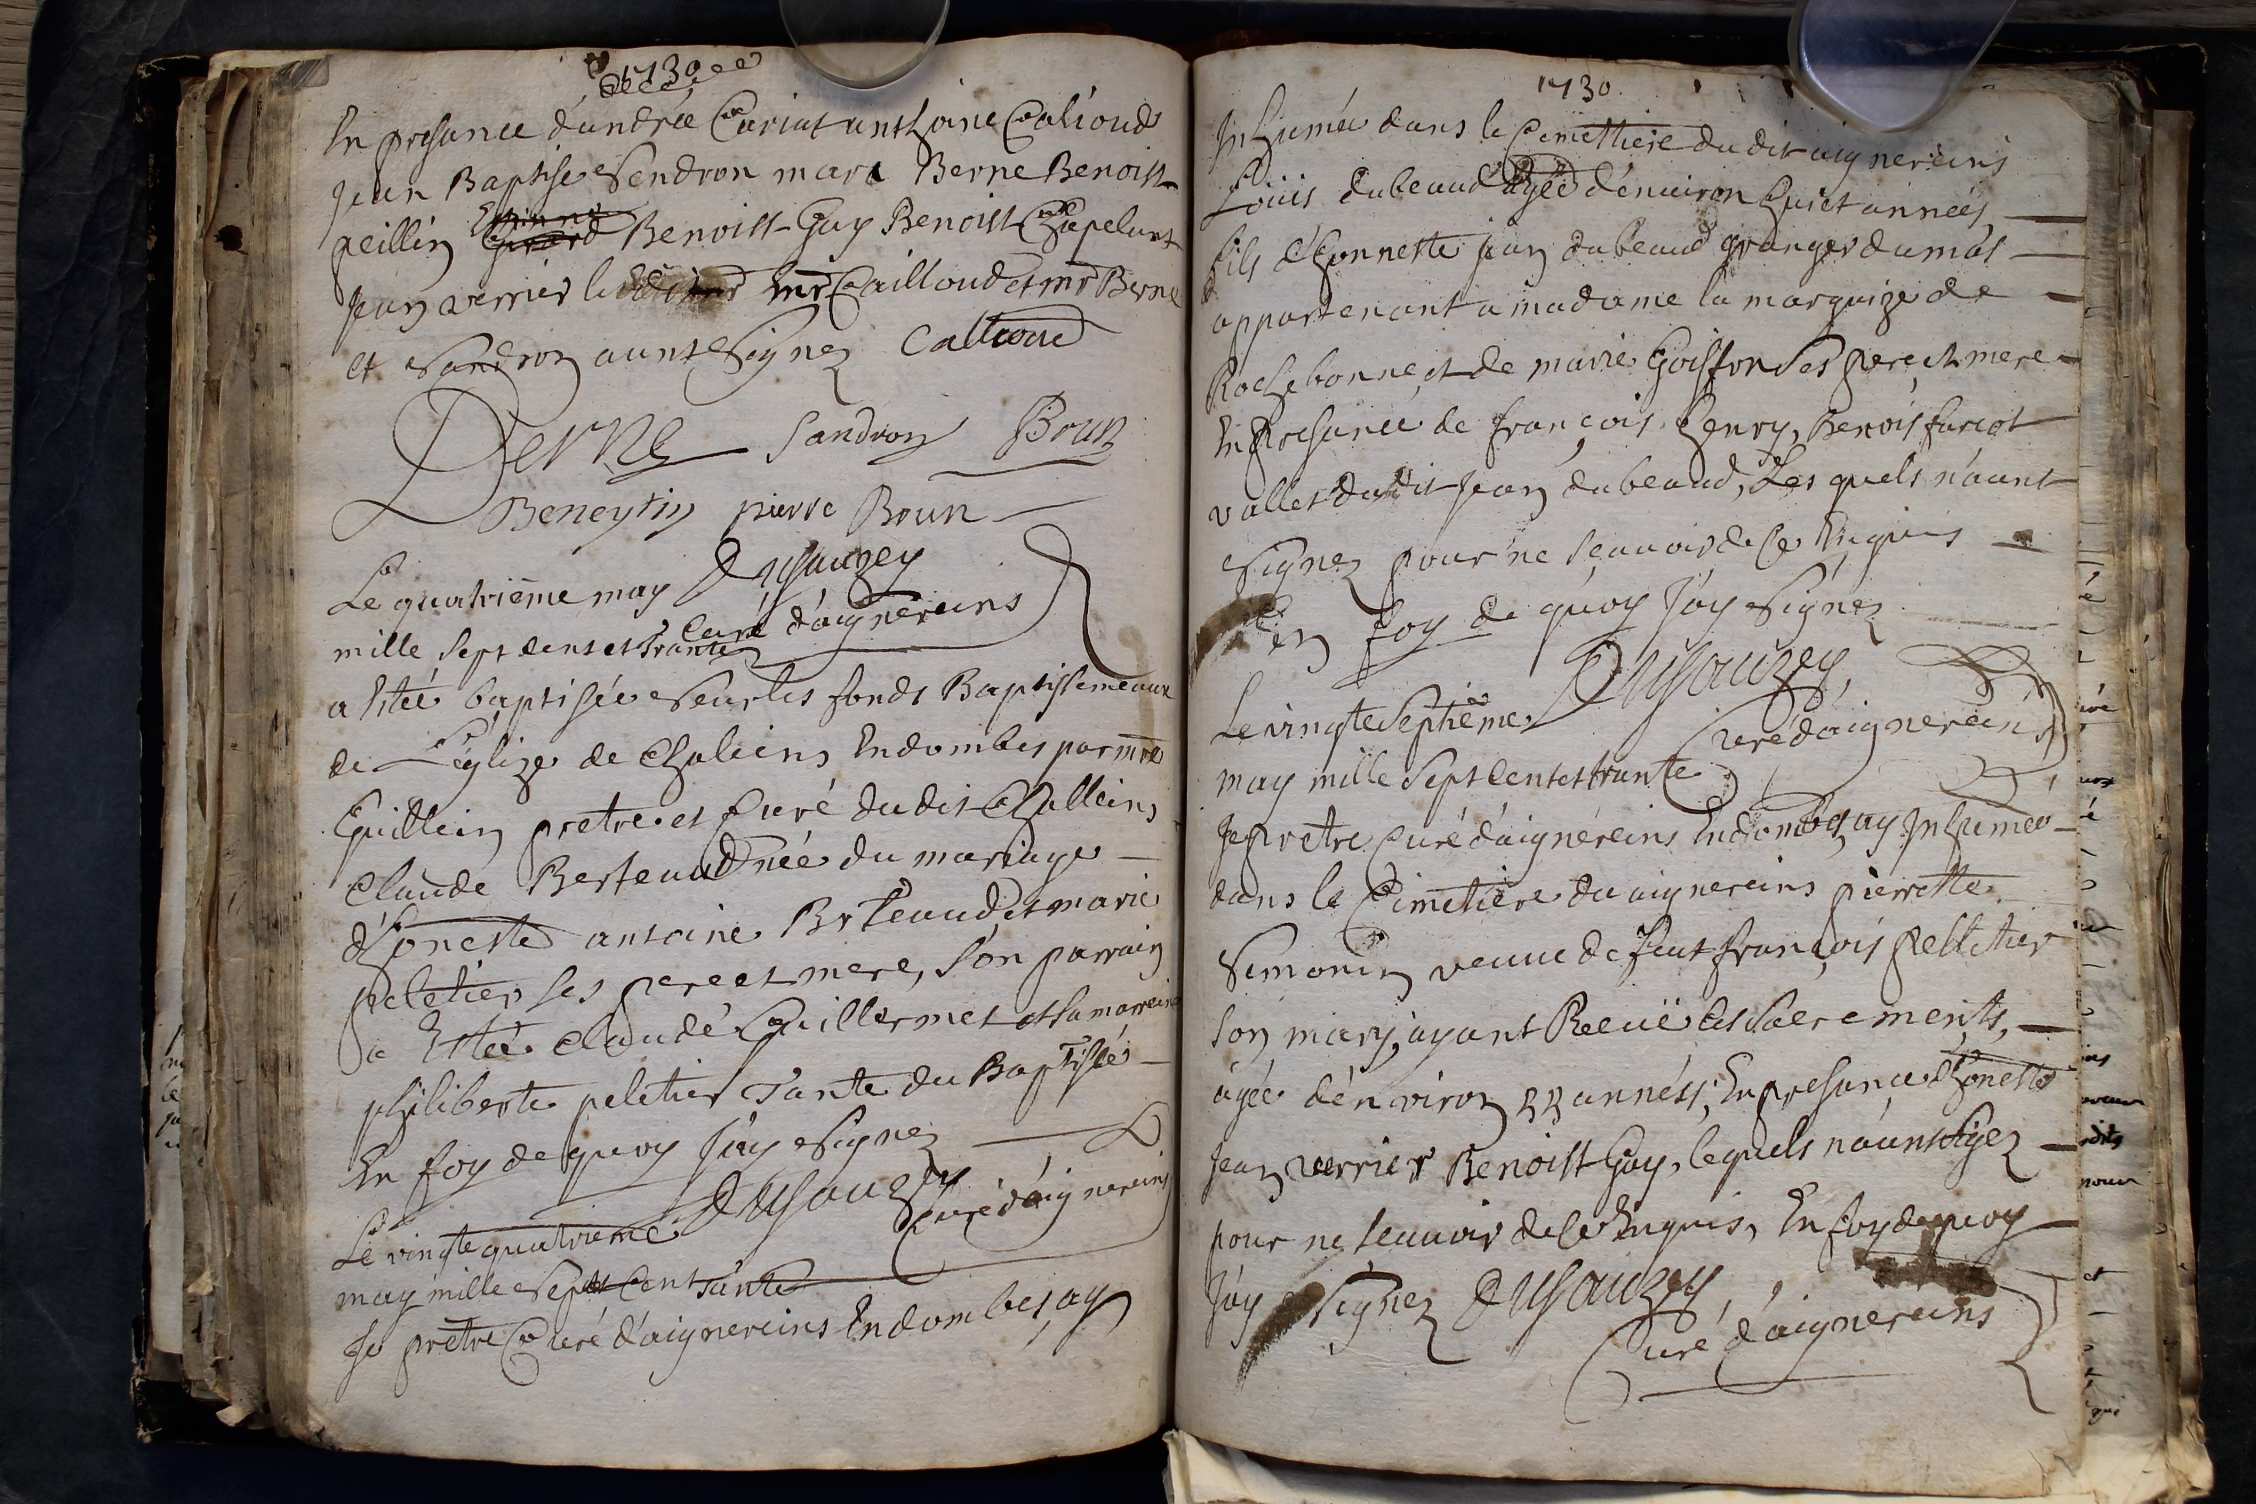 1730
En presance d'andrée Cariat anthoine Calioud
Jean Baptise Sendron marc Berne Benoist
peillin Benoist Guy Benoist Chapelant
Jean verrier le Mr Cailloud et mr Berne
et Sandron aunt Signez Callioud
Berne Sandron Brun
Beneytin pierre Brun
Dusauzey
Le quatriême may
Curé d'aignereins
mille Sept Cent et trante
a Estéé baptisée Seur les fonds Baptissemeaux
de L'églize de Chaleins En dombes par mre
Guillein pretre et Curé du dit Challeins
Claude Berteaud née du mariage
d'honeste antoine Berteaud et marie
peletier ses pere et mere, Son parrain
a Estéé Claude Guillermet et sa marreine
philiberte peletier Tante du Baptissé
En foy de quoy J'ay Signez
Dusauzey
Curé d'aignereins
Le vingte quatrieme
may mille Sept Cent trante
Je pretre Curé d'aignereins En dombes, ay
1730
Inhumée dans le Cimettiere du dit aignereins
Loüis dubeaud agéé d'enuiron huict années
fils d'honneste jean dubeaud granger du mas
appartenant a madame la marquize de
Rochebonne, et de marie Goiffon Ses pere et mere
En presance de françois henry, Benois farcot
vallet du dit Jean dubeaud, Les quels n'aunt
Signez pour ne Scauoir de Ce Enquis
En foy de quoy J'ay Signez
Dusauzey,
Curé d'aignereins
Le vingte Septiême
may mille Sept Cent et trante
Je pretre Curé d'aignéreins En dombes, ay Inhumée
dans le Cimetiere du aignereins pierrette
Simonin veuue de feut françois pelletier
Son mary, ayant Receüe les Sacrements,
agée d'énviron annéés, En presance d'honeste
Jean verrier Benoist Guy, lequels n'aunt Sigez
pour ne Scauoir de Ce Enquis, En foy de quoy
J'ay Signez Dusauzey,
Curé d'aignereins